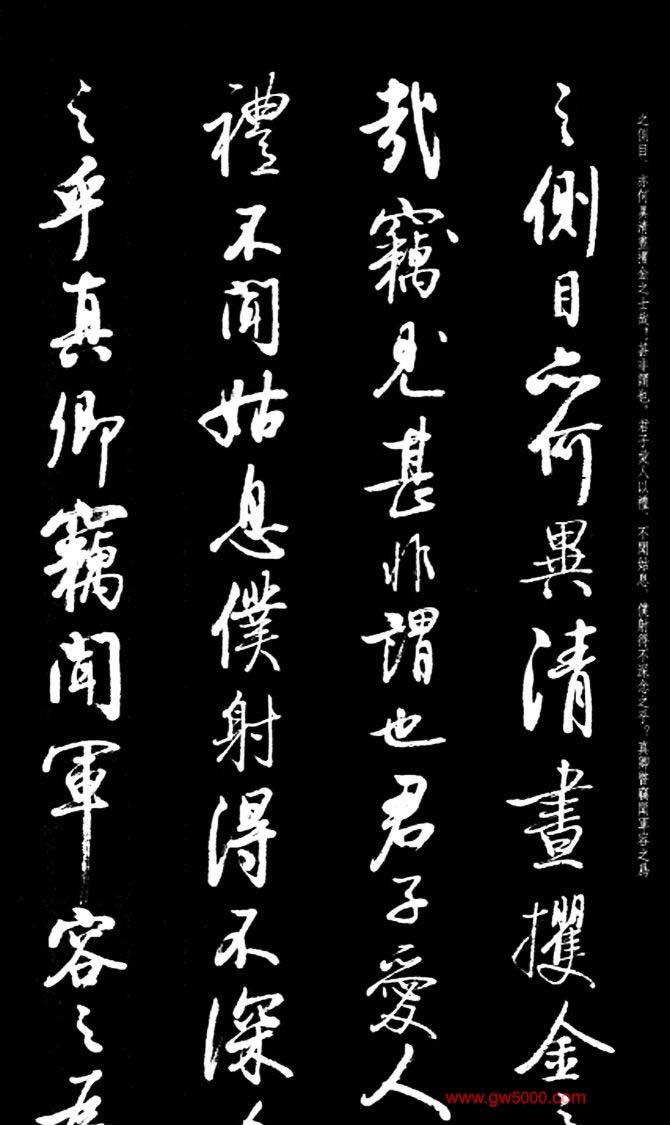 之側目、亦何異清晝攫金之士哉！甚非謂也。君子愛人以禮、不聞姑息、僕射得不深念之乎？真卿竊聞軍容之爲
之側目亦何異清晝攫金之
哉竊見甚非謂也君子愛人
禮不聞姑息僕射得不深
之乎真卿竊聞軍容之
www.gw5000.com